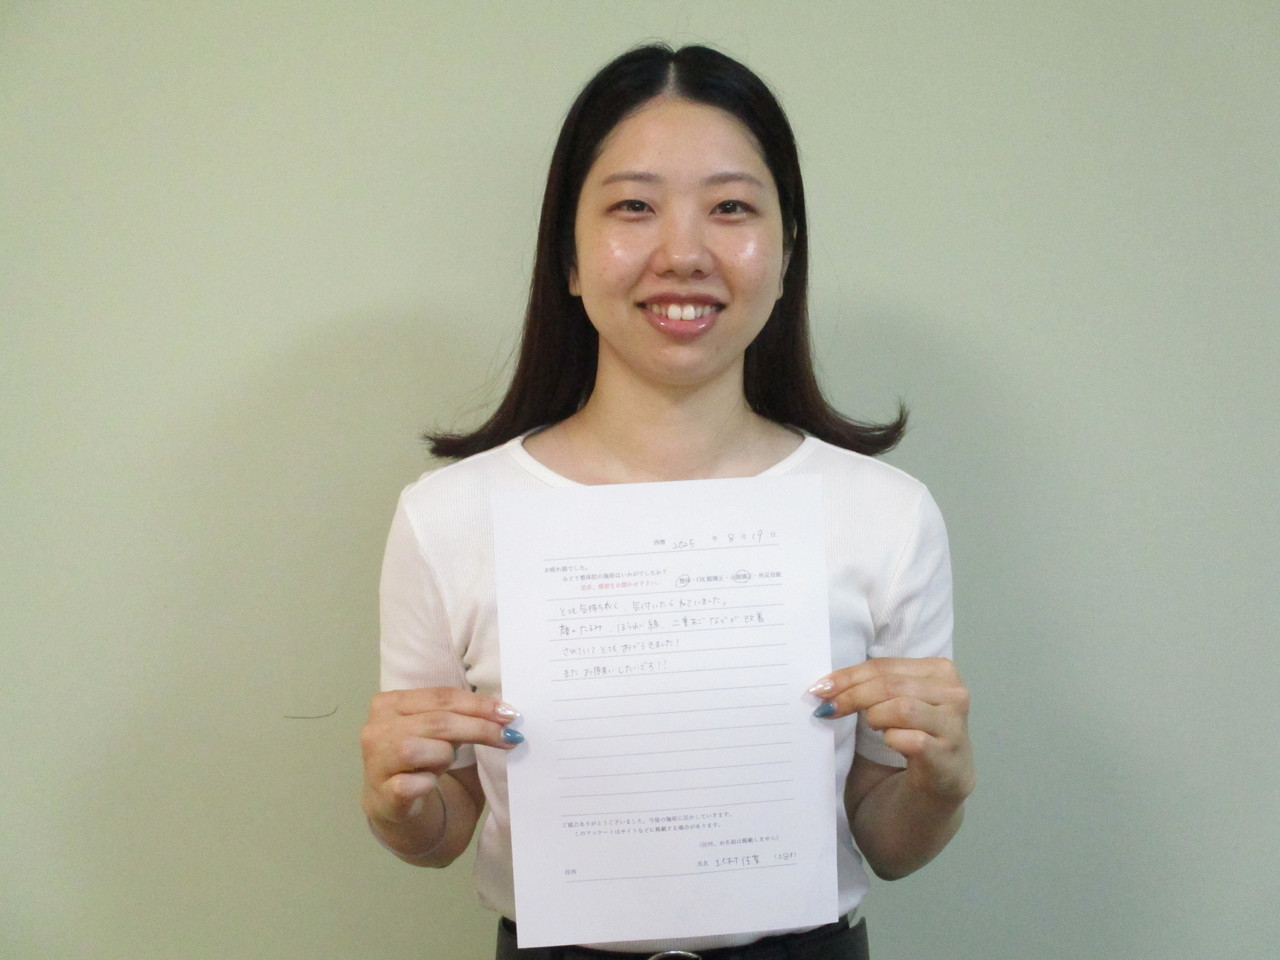 西暦 2025 年 8 月 19 日
お疲れ様でした。
みどり整体院の施術はいかがでしたか?
是非、感想をお聞かせ下さい。 整体・O脚矯正・小顔矯正・外反母趾
とても気持ち良く、気付いたら ねていました。
顔のたるみ、ほうれい線、二重あご などが 改善
されていて とても おどろきました!
また お願いしたいです!!
ご協力ありがとうございました。今後の施術に活かしていきます。
このアンケートはサイトなどに掲載する場合があります。
(住所、お名前は掲載しません)
住所
氏名